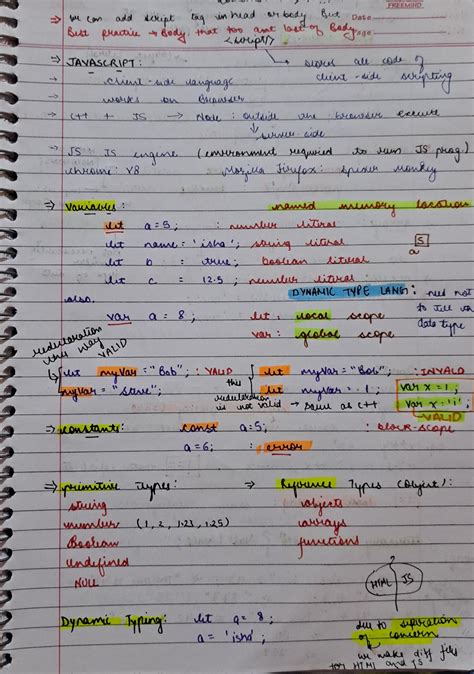 FREEMIND
Date
Page
⇒ we can add script tag in head or body But
Best practice → Body that too at last of Body.
<script>
→ stores all code of client-side scripting
⇒ JAVASCRIPT:
→ client-side language
→ works on Browser
→ C++ + JS → Node: outside the browser execute
↳ server-side
→ JS engine (environment required to run JS prog.)
chrome: V8 Mozilla Firefox: spider monkey
⇒ Variables: named memory location
let a=5; : number literal
let name='isha'; string literal
5
a
let b = true; boolean literal
let c = 12.5; number literal
DYNAMIC TYPE LANG: need not to tell data type
also,
var a = 8; let: local scope
var: global scope
redeclaration this way VALID
let myVar="Bob"; : VALID
myVar="Steve";
let myVar="Bob"; : INVALID
let myVar=1;
this redeclaration is not valid → same as C++
var x=1;
var x='i';
→VALID
⇒ constants: const a=5; : block-scope
a=6; : error
⇒ primitive types: ⇒ Reference Types (object):
string objects
number (1, 2, 1.23, 1.25) arrays
Boolean functions
undefined
NULL
HTML JS
Dynamic Typing: let a=8;
a='isha';
due to separation of concern
we make diff files for HTML and JS